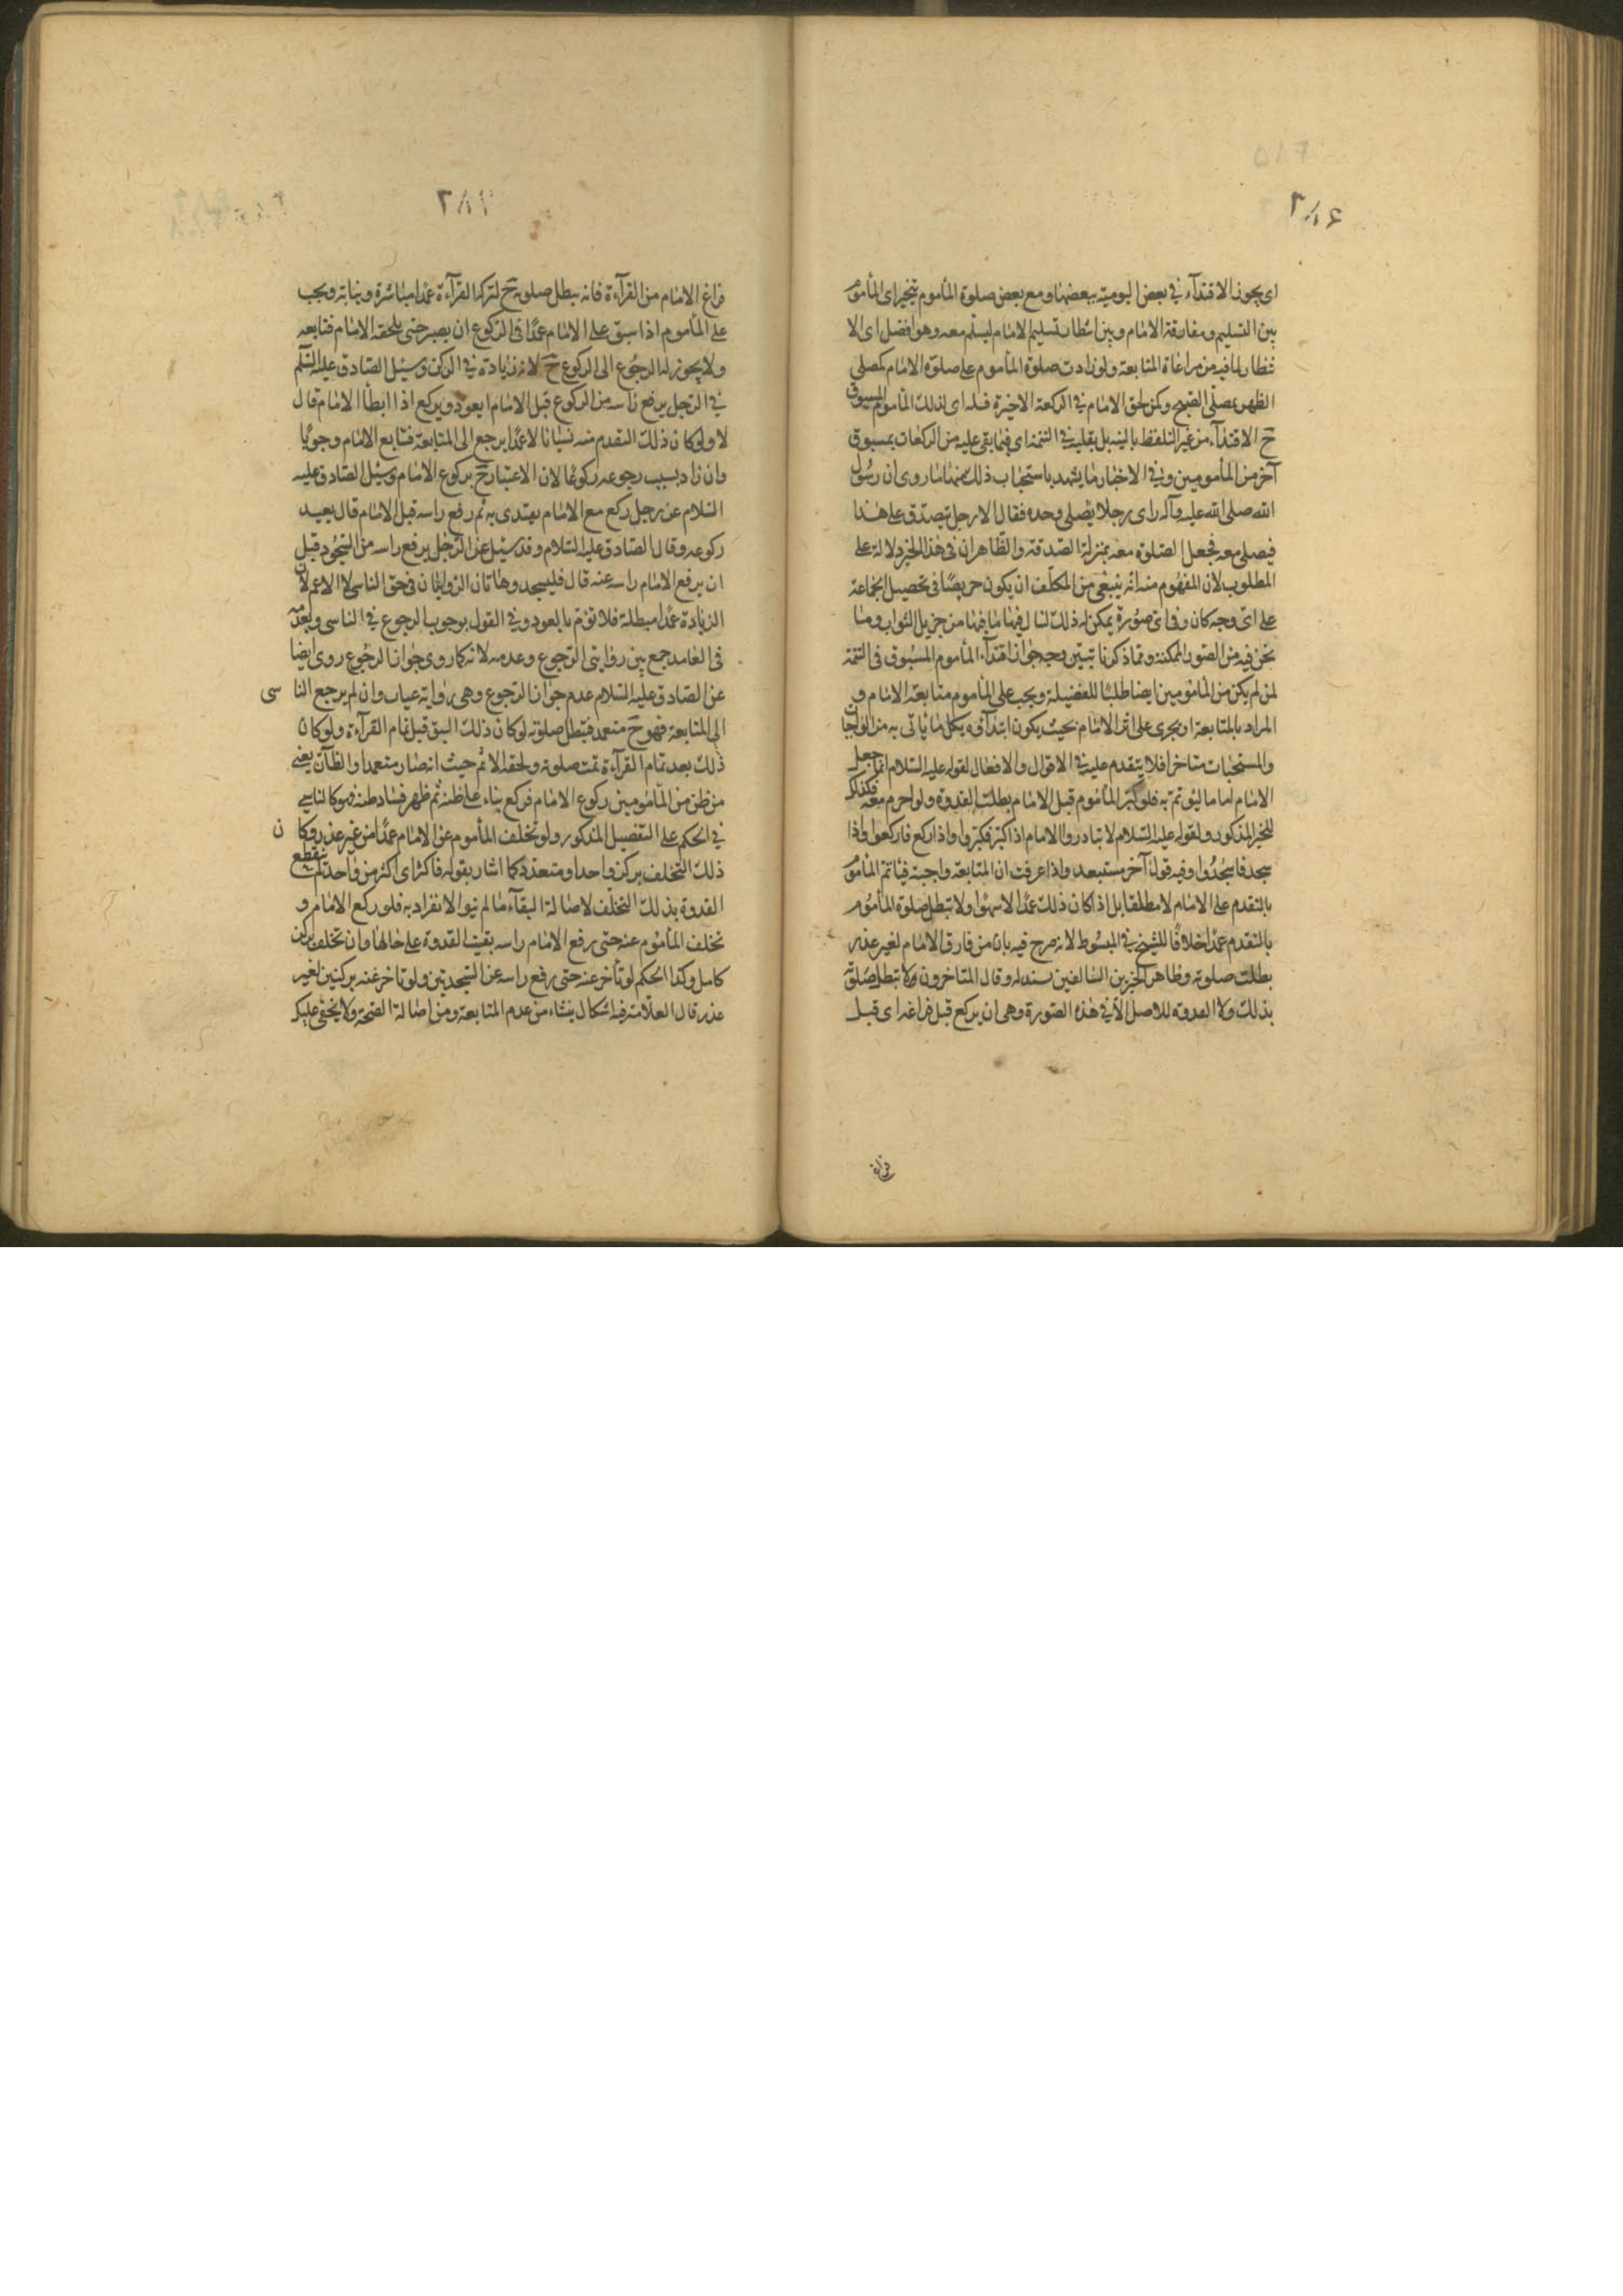 ٢٨٤
اى يجوز الاقتدآء فى بعض اليومية ببعضها ومع بعض صلوة المأموم يتخير اى المأموم
بين التسليم ومفارقة الامام وبين انتظار تسليم الامام ليسلم معه وهو افضل اى الا
نتظار لما فيه من مراعاة المتابعة ولو زادت صلوة المأموم على صلوة الامام كمصلى
الظهر بمصلى الصبح وكمن لحق الامام فى الركعة الاخيرة فله اى لذلك المأموم المسبوق
ح الاقتدآء من غير التلفظ بالنية بل بقلبه فى التتمة اى فيما بقى عليه من الركعات بمسبوق
آخر من المأمومين وفى الاخبار ما يشهد باستحباب ذلك منها ما روى ان رسول
الله صلى الله عليه وآله راى رجلا يصلى وحده فقال الا رجل يتصدق على هذا
فيصلى معه فجعل الصلوة معه بمنزلة الصدقة والظاهر ان فى هذا الخبر دلالة على
المطلوب لان المفهوم منه انه ينبغى من المكلف ان يكون حريصا فى تحصيل الجماعة
على اى وجه كان وفى اى صورة يمكن له ذلك لينال فيها ما فيها من جزيل الثواب وما
نحن فيه من الصور الممكنة ومما ذكرنا تبين وجه جواز اقتدآء المأموم المسبوق فى التتمة
لمن لم يكن من المأمومين ايضا طلبًا للفضيلة ويجب على المأموم متابعة الامام و
المراد بالمتابعة ان يجرى على اثر الامام بحيث يكون ابتدآؤه بكل ما يأتى به من الواجبات
والمستحبات متاخرا فلا يتقدم عليه فى الاقوال والافعال لقوله عليه السلام انما جعل
الامام اماما ليؤتم به فلو كبر المأموم قبل الامام بطلت القدوة ولو احرم معه فكذلك
للخبر المذكور ولقوله عليه السلام لا تبادروا الامام اذا كبر فكبروا واذا ركع فاركعوا واذا
سجد فاسجدوا وفيه قول آخر مستبعد واذا عرفت ان المتابعة واجبة فيأثم المأموم
بالتقدم على الامام لا مطلقا بل اذا كان ذلك عمدًا لا سهوا ولا تبطل صلوة المأموم
بالتقدم عمدًا خلافًا للشيخ فى المبسوط لانه صرح فيه بان من فارق الامام لغير عذر
بطلت صلوته وظاهر الخبرين السالفين سند له وقال المتاخرون لا تبطل صلوته
بذلك ولا القدوة للاصل الا فى هذه الصورة وهى ان يركع قبل فراغه اى قبل
فراغ
٢٨٦
فراغ الامام من القرآءة فانه يبطل صلوته ح لتركه القرآءة عمدًا مباشرة ونيابة ويجب
على المأموم اذا سبق على الامام عمدًا فى الركوع ان يصبر حتى يلحقه الامام فتابعه
ولا يجوز له الرجوع الى الركوع ح لانه زيادة فى الركن وسئل الصادق عليه السلم
فى الرجل يرفع راسه من الركوع قبل الامام ايعود ويركع اذا ابطأ الامام قال
لا ولو كان ذلك التقدم منه نسيانا لا عمدًا يرجع الى المتابعة فتابع الامام وجوبًا
وان زاد بسبب رجوعه ركوعًا لان الاعتبار ح بركوع الامام وسئل الصادق عليه
السلام عن رجل ركع مع الامام يقتدى به ثم رفع راسه قبل الامام قال يعيد
ركوعه وقال الصادق عليه السلام وقد سئل عن الرجل يرفع راسه من السجود قبل
ان يرفع الامام راسه عنه قال فليسجد وهاتان الروايتان فى حق الناسى لا الاعم لان
الزيادة عمدًا مبطلة فلا تؤمر بالعود وفى القول بوجوب الرجوع فى الناسى وبعدمه
فى العامد جمع بين روايتى الرجوع وعدمه لانه كما روى جواز الرجوع روى ايضا
عن الصادق عليه السلام عدم جواز الرجوع وهى رواية غياب وان لم يرجع الناسى
الى المتابعة فهو ح متعمد فتبطل صلوته لو كان ذلك السبق قبل تمام القرآءة ولو كان
ذلك بعد تمام القرآءة تمت صلوته ولحقه الاثم حيث انه صار متعمدا والظآن يعنى
من ظن من المأمومين ركوع الامام فركع بناء على ظنه ثم ظهر فساد ظنه فهو كالناسى
فى الحكم على التفصيل المذكور ولو تخلف المأموم عن الامام عمدًا من غير عذر وكان
ذلك التخلف بركن واحد او متعدد كما اشار بقوله فاكثر اى اكثر من واحد لم ينقطع
القدوة بذلك التخلف لاصالة البقآء ما لم ينو الانفراد به فلو ركع الامام و
تخلف المأموم عنه حتى رفع الامام راسه بقيت القدوة على حالها وان تخلف بركن
كامل وكذا الحكم لو تأخر عنه حتى رفع راسه عن السجدتين ولو تاخر عنه بركنين لغير
عذر قال العلامة فيه اشكال ينشاء من عدم المتابعة ومن اصالة الصحة ولا يخفى عليك